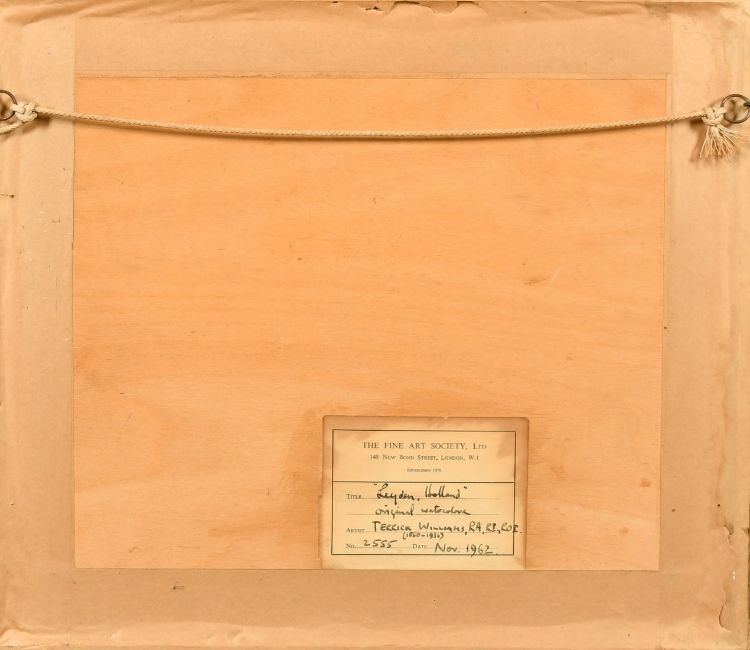 THE FINE ART SOCIETY, LTD
148 NEW BOND STREET, LONDON, W.1
ESTABLISHED 1876
TITLE "Leyden, Holland"
original watercolour
ARTIST TERRICK WILLIAMS, RA, RI, ROI.
(1860-1936)
No. 2555 DATE Nov. 1962.